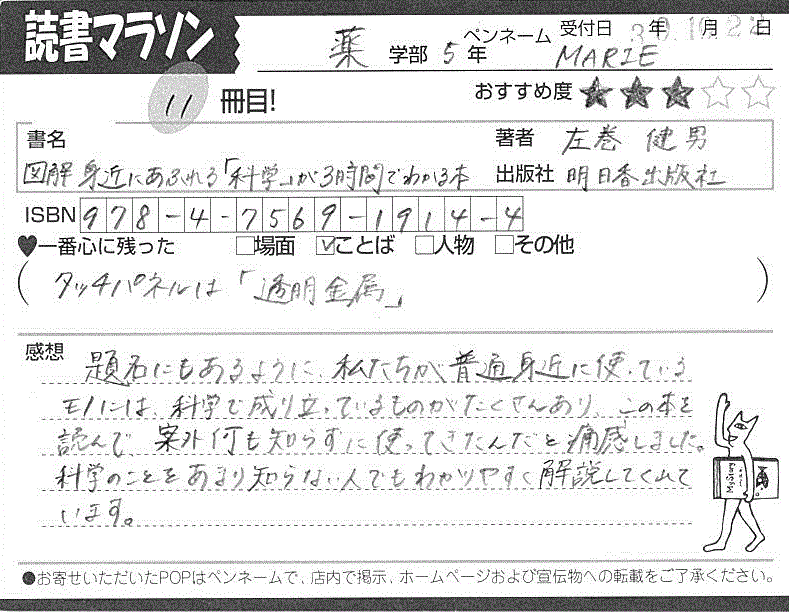 読書マラソン
薬 学部 5 年 ペンネーム MARIE 受付日 30年10月22日
11 冊目!
おすすめ度 ★★★☆☆
書名
図解 身近にあふれる「科学」が3時間でわかる本
著者 左巻 健男
出版社 明日香出版社
ISBN 978-4-7569-1914-4
♥一番心に残った □場面 ☑ことば □人物 □その他
(タッチパネルは「透明金属」)
感想
題名にもあるように、私たちが普通身近に使っている
モノには、科学で成り立っているものがたくさんあり、この本を
読んで 案外何も知らずに使ってきたんだと痛感しました。
科学のことをあまり知らない人でもわかりやすく解説してくれて
います。
●お寄せいただいたPOPはペンネームで、店内で掲示、ホームページおよび宣伝物への転載をご了承ください。